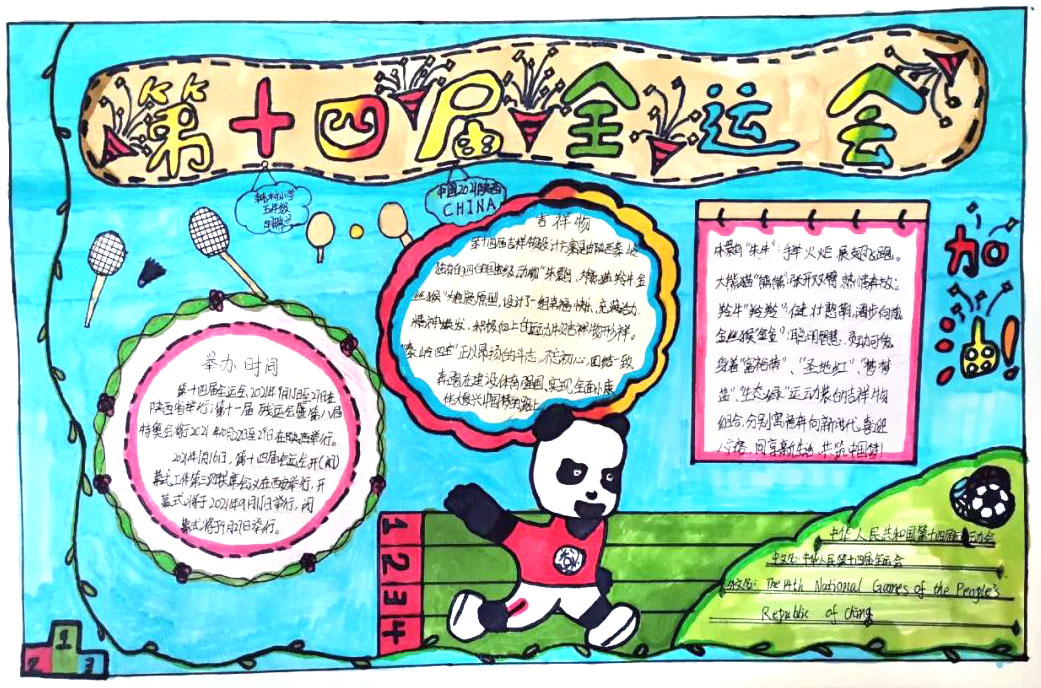 第十四届全运会
小学
五年级
中国2021陕西
CHINA
举办时间
第十四届全运会,2021年9月15日至27日在
陕西省举行;第十一届残运会暨第八届
特奥会将于2021年10月22日至29日在陕西举行。
2021年1月16日,第十四届全运会开(闭)
幕式工作第三次联席会议在西安举行,开
幕式将于2021年9月15日举行,闭
幕式将于9月27日举行。
吉祥物
第十四届吉祥物设计方案是由陕西秦岭
独有的四个国宝级动物"朱鹮、大熊猫、羚牛、金
丝猴"为创意原型,设计了一组幸福快乐、充满活力
精神焕发、积极向上的运动吉祥物形象。
"秦岭四宝"正以昂扬的斗志,不忘初心,团结一致
奔跑在建设体育强国,实现全面小康
伟大复兴中国梦的路上。
朱鹮"朱朱":手举火炬,展翅飞翔。
大熊猫"熊熊":张开双臂,热情奔放;
羚牛"羚羚":健壮憨萌,阔步向前
金丝猴"金金":聪明智慧,灵动可爱
身着
"圣地红"、"
"生态绿"运动装的吉祥物
组合,分别寓意奔向新时代,喜迎
同享新生活,共筑中国梦!
加油!
1
2
3
4
中华人民共和国第十四届运动会
中文:中华人民第十四届全运会
The 14th National Games of the People's
Republic of China
1
2
3